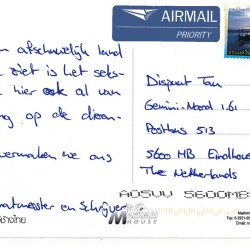 AIRMAIL
PRIORITY
n afschuwelijk land
ziet is het seks-
hier ook al van
ng op de
vermaken we ons
en Schrijver
Dispuut Tau
Gemini-Noord 1.61
Postbus 513
5600 MB Eindhove
The Netherlands
A05VV 5600MB
HOUSE